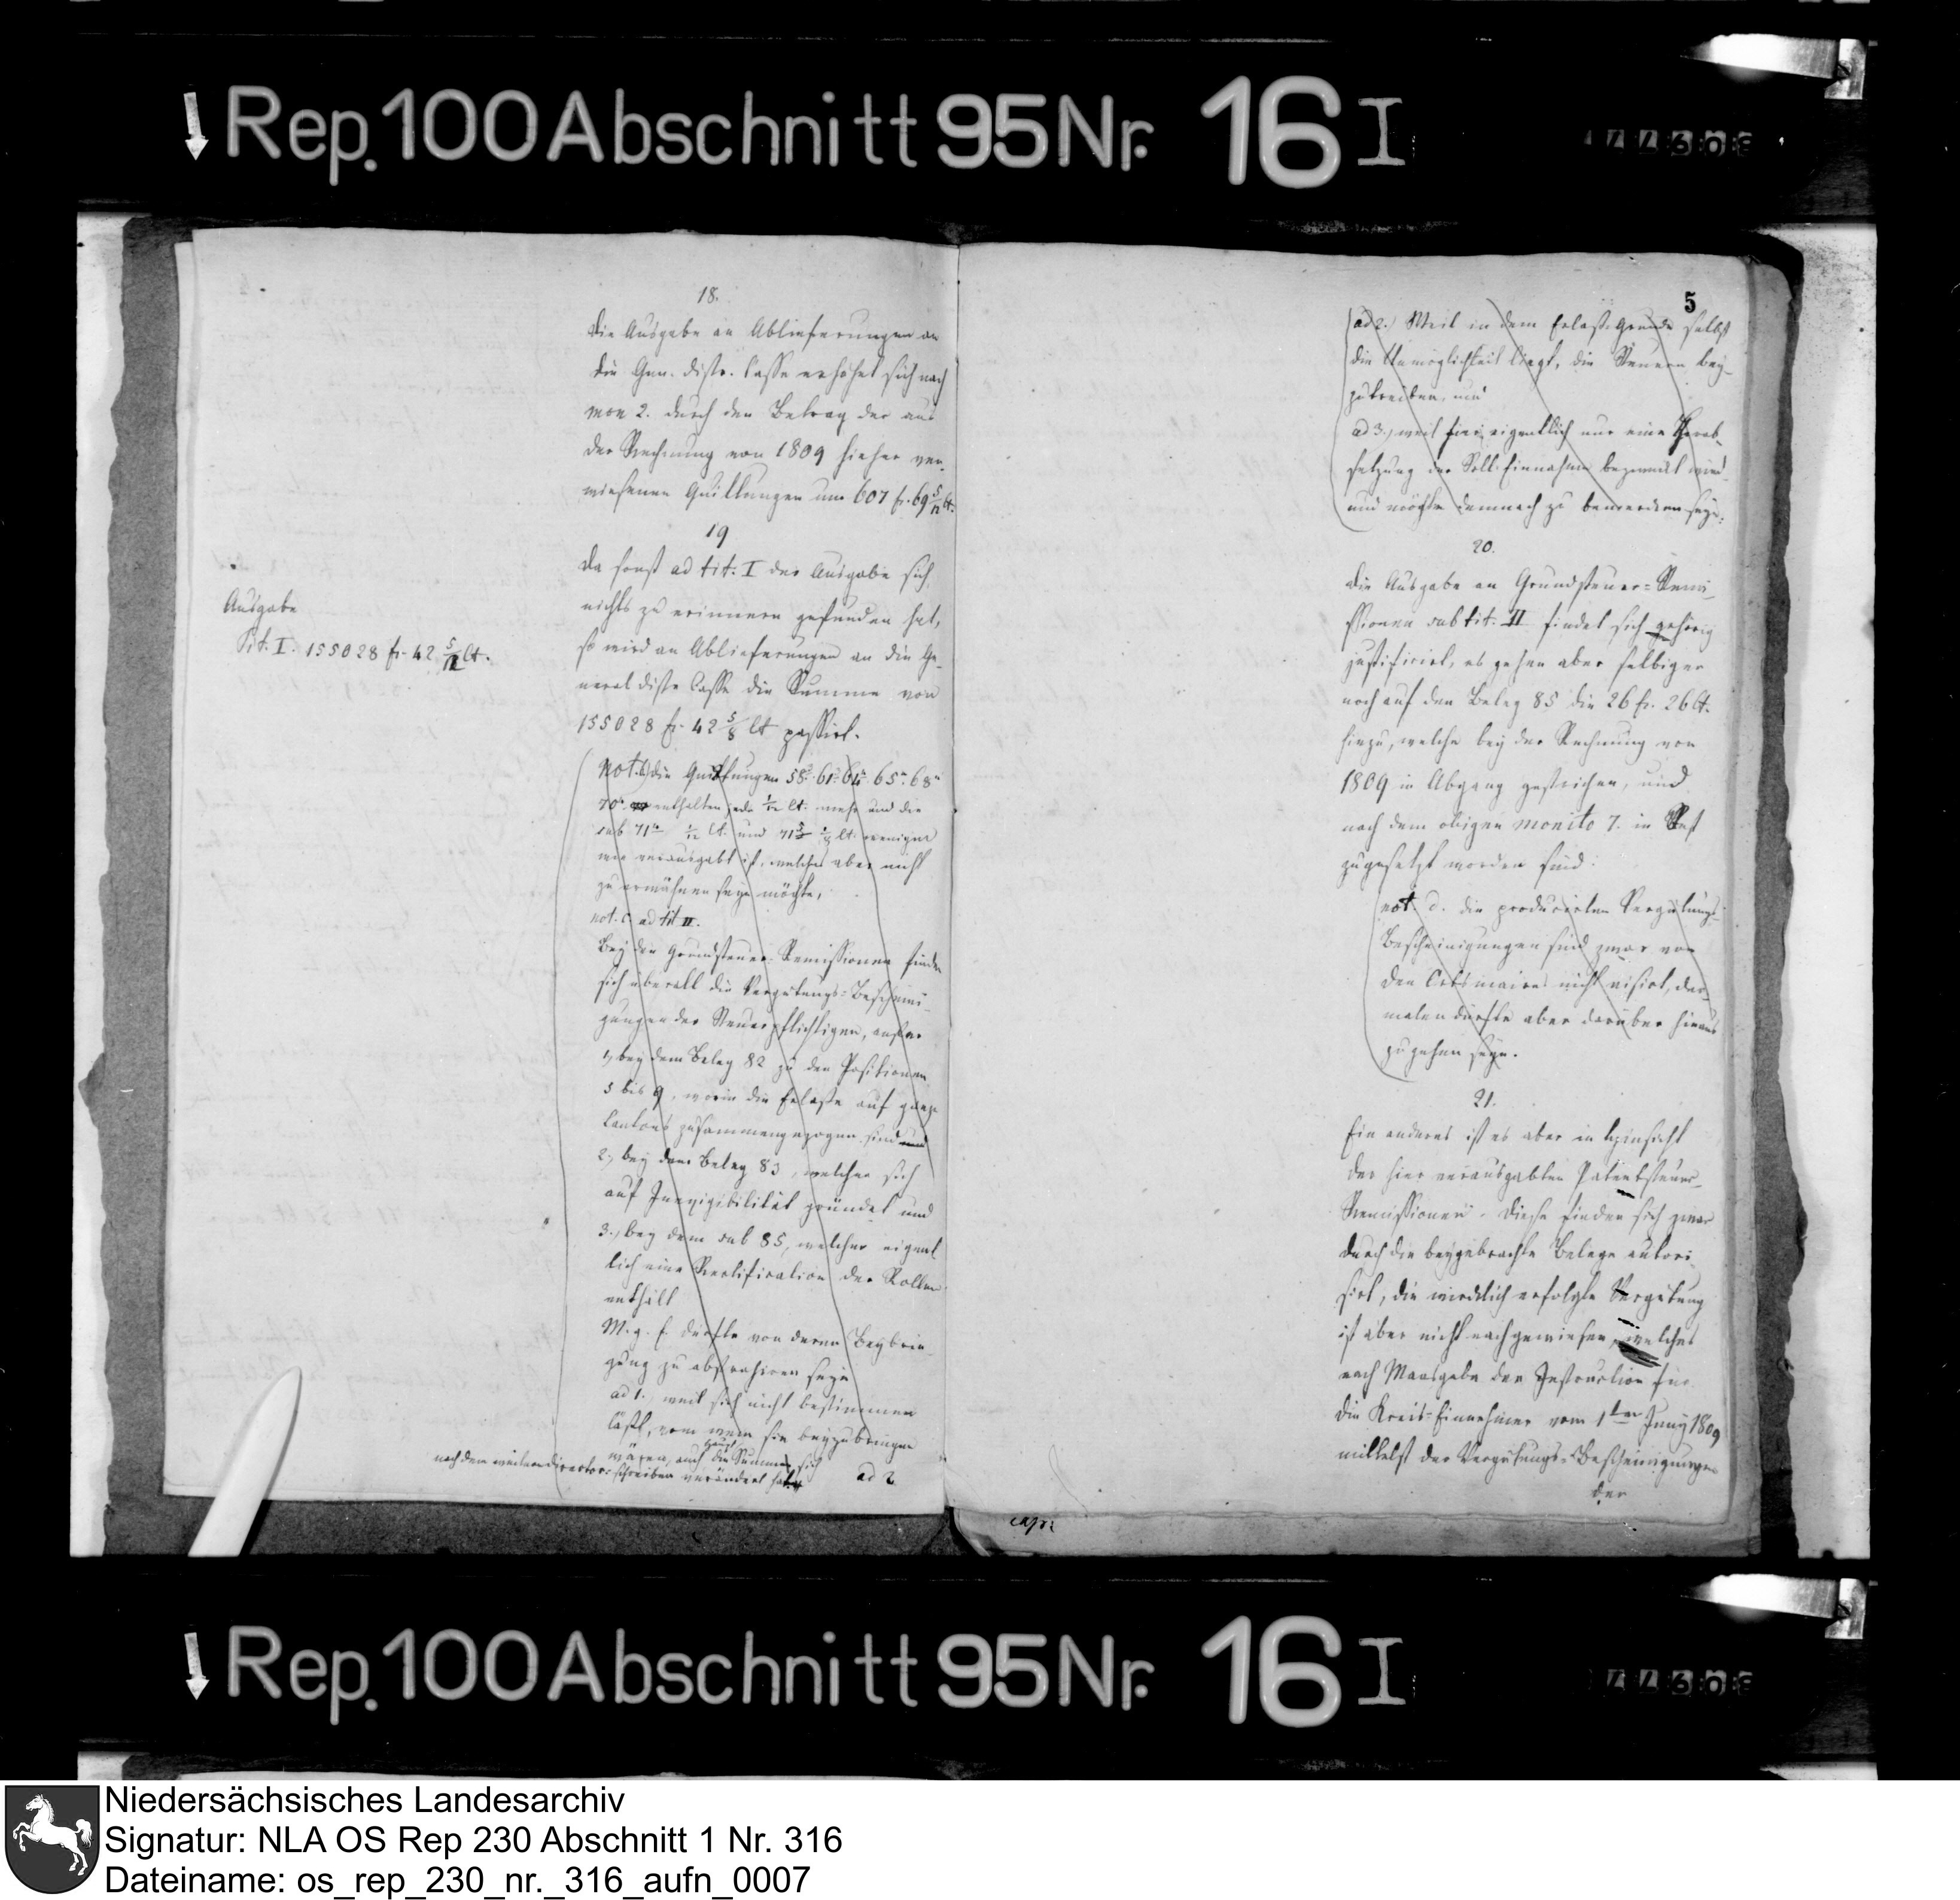 Rep. 100 Abschnitt 95 Nr. 16 I
18.
die Ausgabe an Ablieferungen an
die Gen. distr. Casse erhöhet sich nach
mon 2. durch den Betrag der aus
der Rechnung von 1809 hieher ver-
wiesenen Quittungen um 607 fr. 69 5/12 Ct.
19
Da sonst ad tit. I der Ausgabe sich
nichts zu erinnern gefunden hat,
so wird an Ablieferungen an die Ge-
neral distr Casse die Summe von
155028 fr. 42 5/8 Ct passirt.
Ausgabe
Tit. I. 155028 fr. 42 5/12 Ct.
not. b) die Quittungen 58. 61. 64. 65. 68
70 enthalten jede 1/12 Ct. mehr und die
sub 71 1/12 Ct. und 71 Ct. weniger
wie verausgabt ist, welches aber nicht
zu erwähnen seyn möchte,
not. c. ad tit II.
Bey den Grundsteuer-Remissionen finden
sich überall die Vergütungs-Bescheini-
gungen der Steuerpflichtigen, ausser
1, bey dem Beleg 82 zu den Positionen
5 bis 9, worin die Erlasse auf ganze
Cantons zusammengezogen sind und
2, bey dem Beleg 83, welcher sich
auf Inexigibilität gründet und
3., bey dem sub 85, welcher eigent
lich eine Rectification der Rollen
enthält
M. g. E. dürfte von deren Beybrin-
gung zu abstrahiren seyn
ad 1. weil sich nicht bestimmen
läßt, von wem sie beyzubringen
wären, auch die Summe sich
nach dem weitern director-schreiben verändert hat
ad 2
5
ad 2.) Weil in dem Erlaß-Grunde selbst
die Unmöglichkeit liegt, die Steuern bey-
zutreiben, und
ad 3., weil hier eigentlich nur eine Herab-
setzung der Soll-Einnahme bezweckt wird
und möchte demnach zu bemerken seyn:
20.
die Ausgabe an Grundsteuer-Remi-
ssionen sub tit. II findet sich gehörig
justificirt, es gehen aber selbiger
noch auf den Beleg 85 die 26 fr. 26 Ct.
hinzu, welche bey der Rechnung von
1809 in Abgang gestrichen, und
nach dem obigen monito 7. in Rest
zugesetzt worden sind.
not d. die producirten Vergütungs-
Bescheinigungen sind zwar von
den Ortsmaires nicht visirt, der-
malen dürfte aber darüber hinaus
zu gehen seyn.
21.
Ein anderes ist es aber in Hinsicht
der hier verausgabten Patentsteuer-
Remissionen. Diese finden sich zwar
durch die beygebrachte Belege autori-
sirt, die wircklich erfolgte Vergütung
ist aber nicht nachgewiesen, welches
nach Maasgabe der Instruction für
die Kreis-Einnehmer vom 1ten Juny 1809
mittelst der Vergütungs-Bescheinigungen
der
Rep. 100 Abschnitt 95 Nr. 16 I
Niedersächsisches Landesarchiv
Signatur: NLA OS Rep 230 Abschnitt 1 Nr. 316
Dateiname: os_rep_230_nr._316_aufn_0007